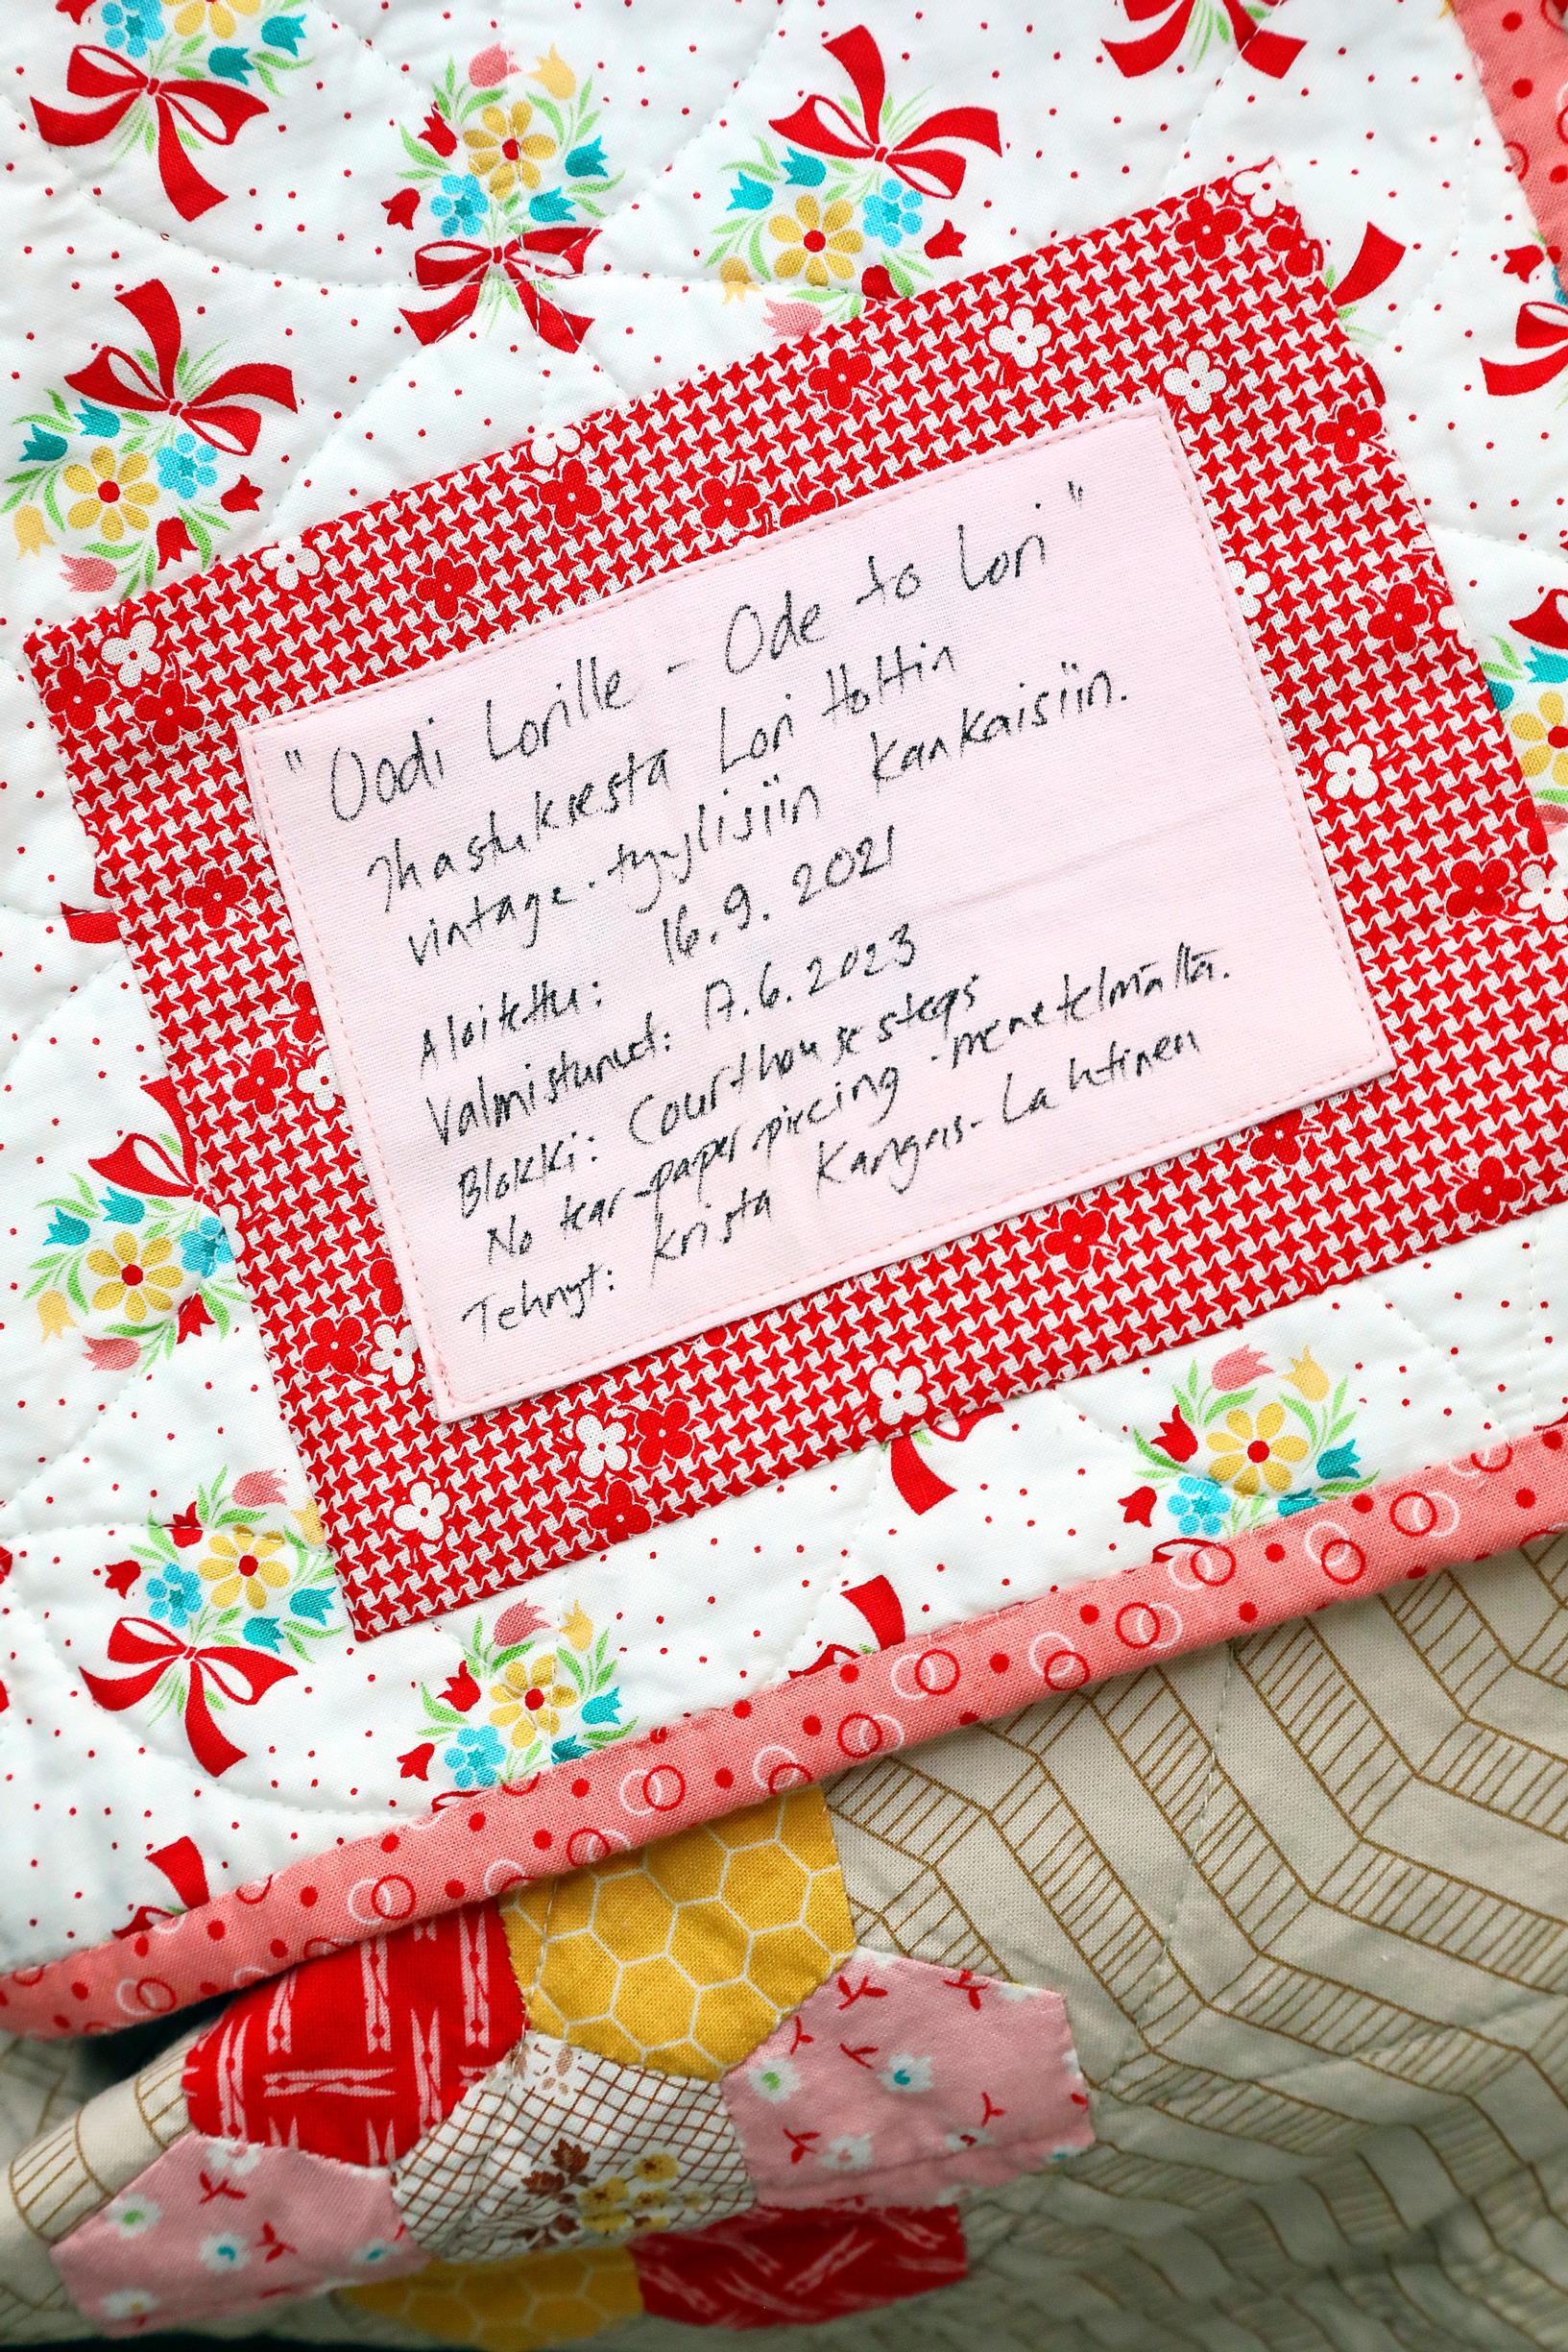 "Oodi Lorille - Ode to Lori"
Ihastuksesta Lori Holtin
vintage-tyylisiin kankaisiin.
Aloitettu: 16.9.2021
Valmistunut: 17.6.2023
Blokki: Courthouse steps
No tear-paper piecing -menetelmällä.
Tehnyt: Krista Kangas-Lahtinen